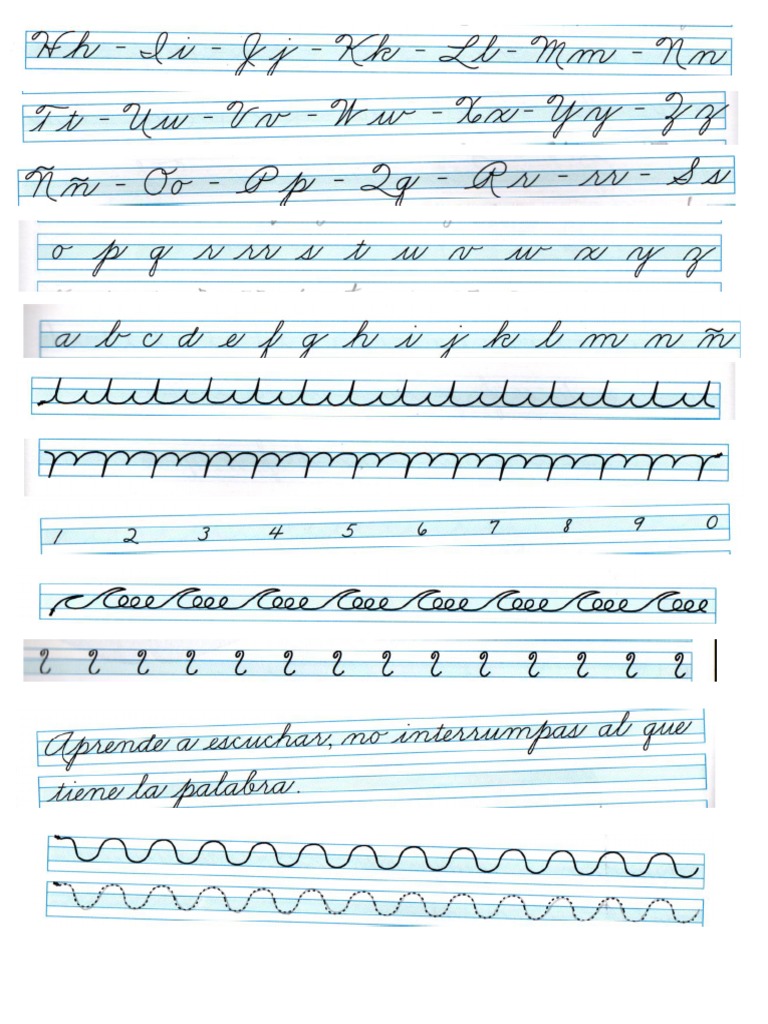 Hh - Ii - Jj - Kk - Ll - Mm - Nn
Tt - Uu - Vv - Ww - Xx - Yy - Zz
Ññ - Oo - Pp - Qq - Rr - rr - Ss
o p q r rr s t u v w x y z
a b c d e f g h i j k l m n ñ
1 2 3 4 5 6 7 8 9 0
Aprende a escuchar, no interrumpas al que
tiene la palabra.